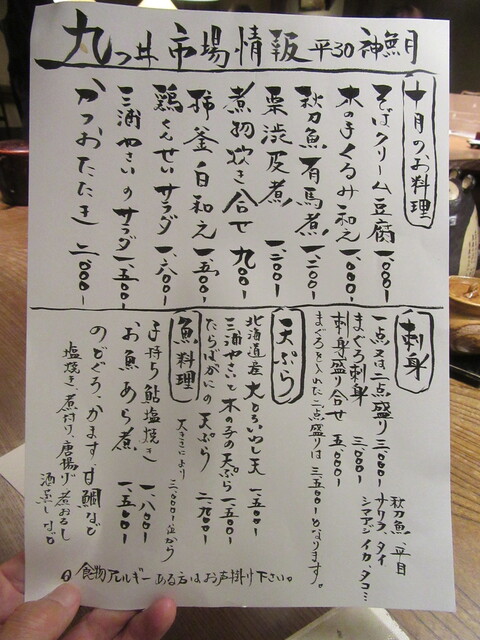 九つ井 市場情報 平30 神無月
十月のお料理
そばクリーム豆腐 一、000-
木の子くるみ和え 一、000-
秋刀魚有馬煮 一、二00-
栗渋皮煮 一、二00-
煮物炊き合せ 九00-
柿釜白和え 一、五00-
鶏くんせいサラダ 一、六00-
三浦やさいのサラダ 一、五00-
かつおたたき 二、000-
刺身
一点又は二点盛り 三、000-
秋刀魚、平目
サワラ、タイ
シマアジ イカ、タコ…
まぐろ刺身 三、000-
刺身盛り合せ 五、000-
まぐろを入れた二点盛りは三、五00-となります。
天ぷら
北海道産大とろいわし天 一、五00-
三浦やさいと木の子の天ぷら 一、五00-
たらばがにの天ぷら 二、九00-
魚料理
大きさにより 三、000-位から
子持ち鮎塩焼き 一、八00-
お魚あら煮 一、五00-
のどぐろ、かます、甘鯛など
塩焼き、煮付け、唐揚げ 煮おろし
酒蒸しなど
食物アレルギーある方はお声掛け下さい。